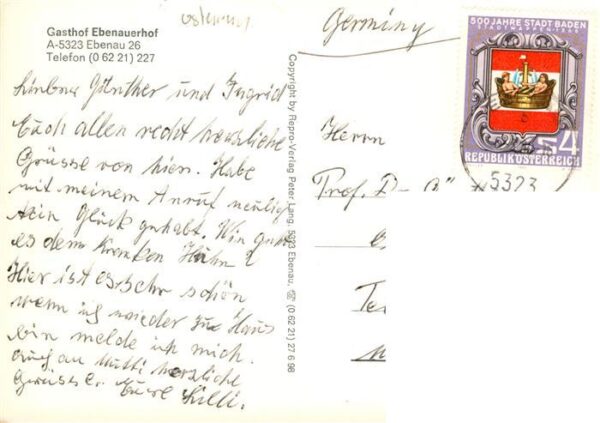 österreich
Gasthof Ebenauerhof
A-5323 Ebenau 26
Telefon (0 62 21) 227
Günther und Ingrid
Euch allen recht herzliche
Grüsse von hier. Habe
mit meinem Anruf neulich
kein Glück gehabt. Wie geht
es dem kranken Huhn?
Hier ist es sehr schön
wenn ich wieder zu Haus
bin melde ich mich.
Auch an Mutti herzliche
Grüsse. Eure Lilli.
Copyright by Repro-Verlag Peter Lang, 5323 Ebenau, ☏ (0 62 21) 27 6 98
Germany
Herrn
Prof. D
500 JAHRE STADT BADEN
S4
REPUBLIK ÖSTERREICH
5323